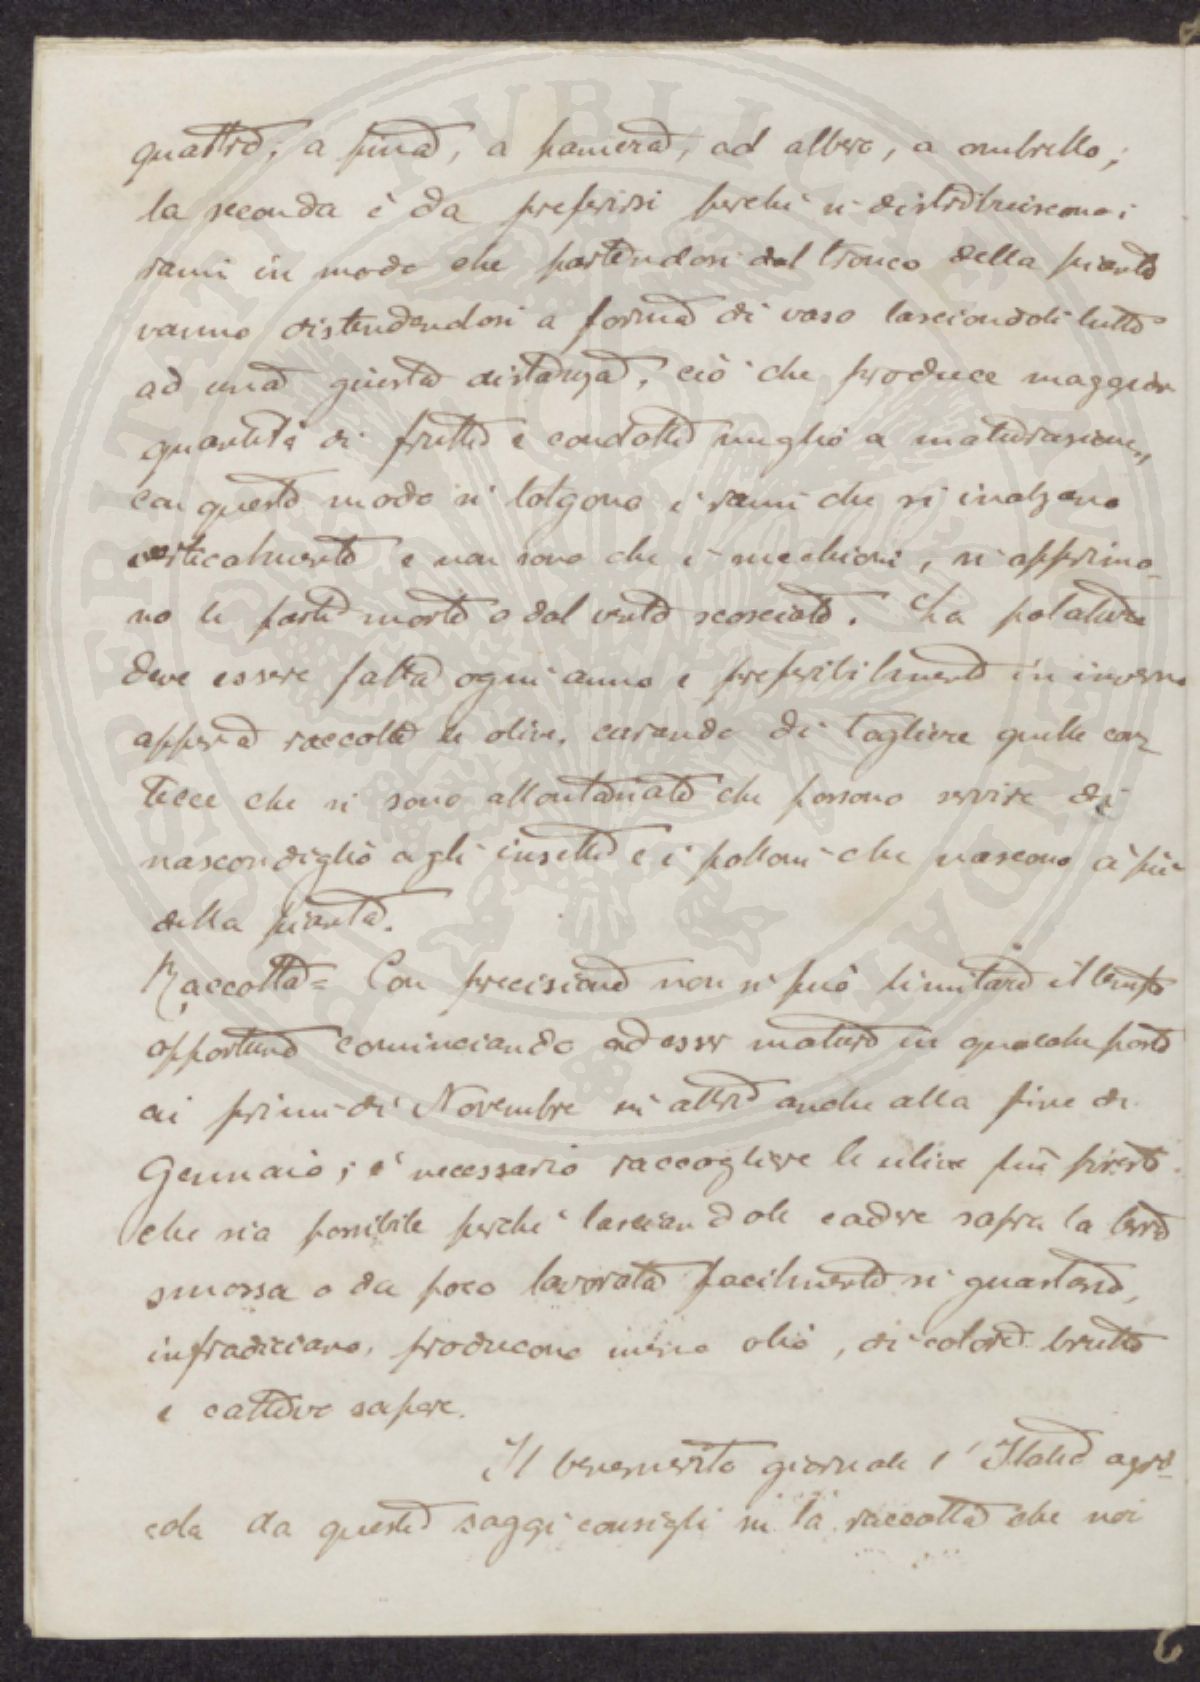 quattro; a pina, a paniera, ad albero, a ombrello;
la seconda è da preferirsi perchè si distribuiscono i
rami in modo che partendosi dal tronco della pianta
vanno distendendosi a forma di vaso lasciandoli tutti
ad una giusta distanza, ciò che produce maggior
quantità di frutti e condotti meglio a maturazione,
con questo modo si tolgono i rami che si inalzano
verticalmente e non sono che i succhioni, si opprimo-
no le parti morte o dal vento scosciate. La potatura
deve essere fatta ogni anno e preferibilmente in inverno
appena raccolte le olive, curando di togliere quelle cor-
tecce che si sono allontanate che possono servire di
nascondiglio agli insetti e i polloni che nascono a piè
della pianta.
Raccolta = Con precisione non si può limitare il tempo
opportuno cominciando ad esser mature in qualche parte
ai primi di Novembre in altre anche alla fine di
Gennaio; è necessario raccogliere le ulive più presto
che sia possibile perchè lasciandole cadere sopra la terra
smossa o da poco lavorata facilmente si guastano,
infradiciano, producono meno olio, di colore brutto
e cattivo sapore.
Il benemerito giornale l'Italia agri-
cola da questi saggi consigli su la raccolta che noi